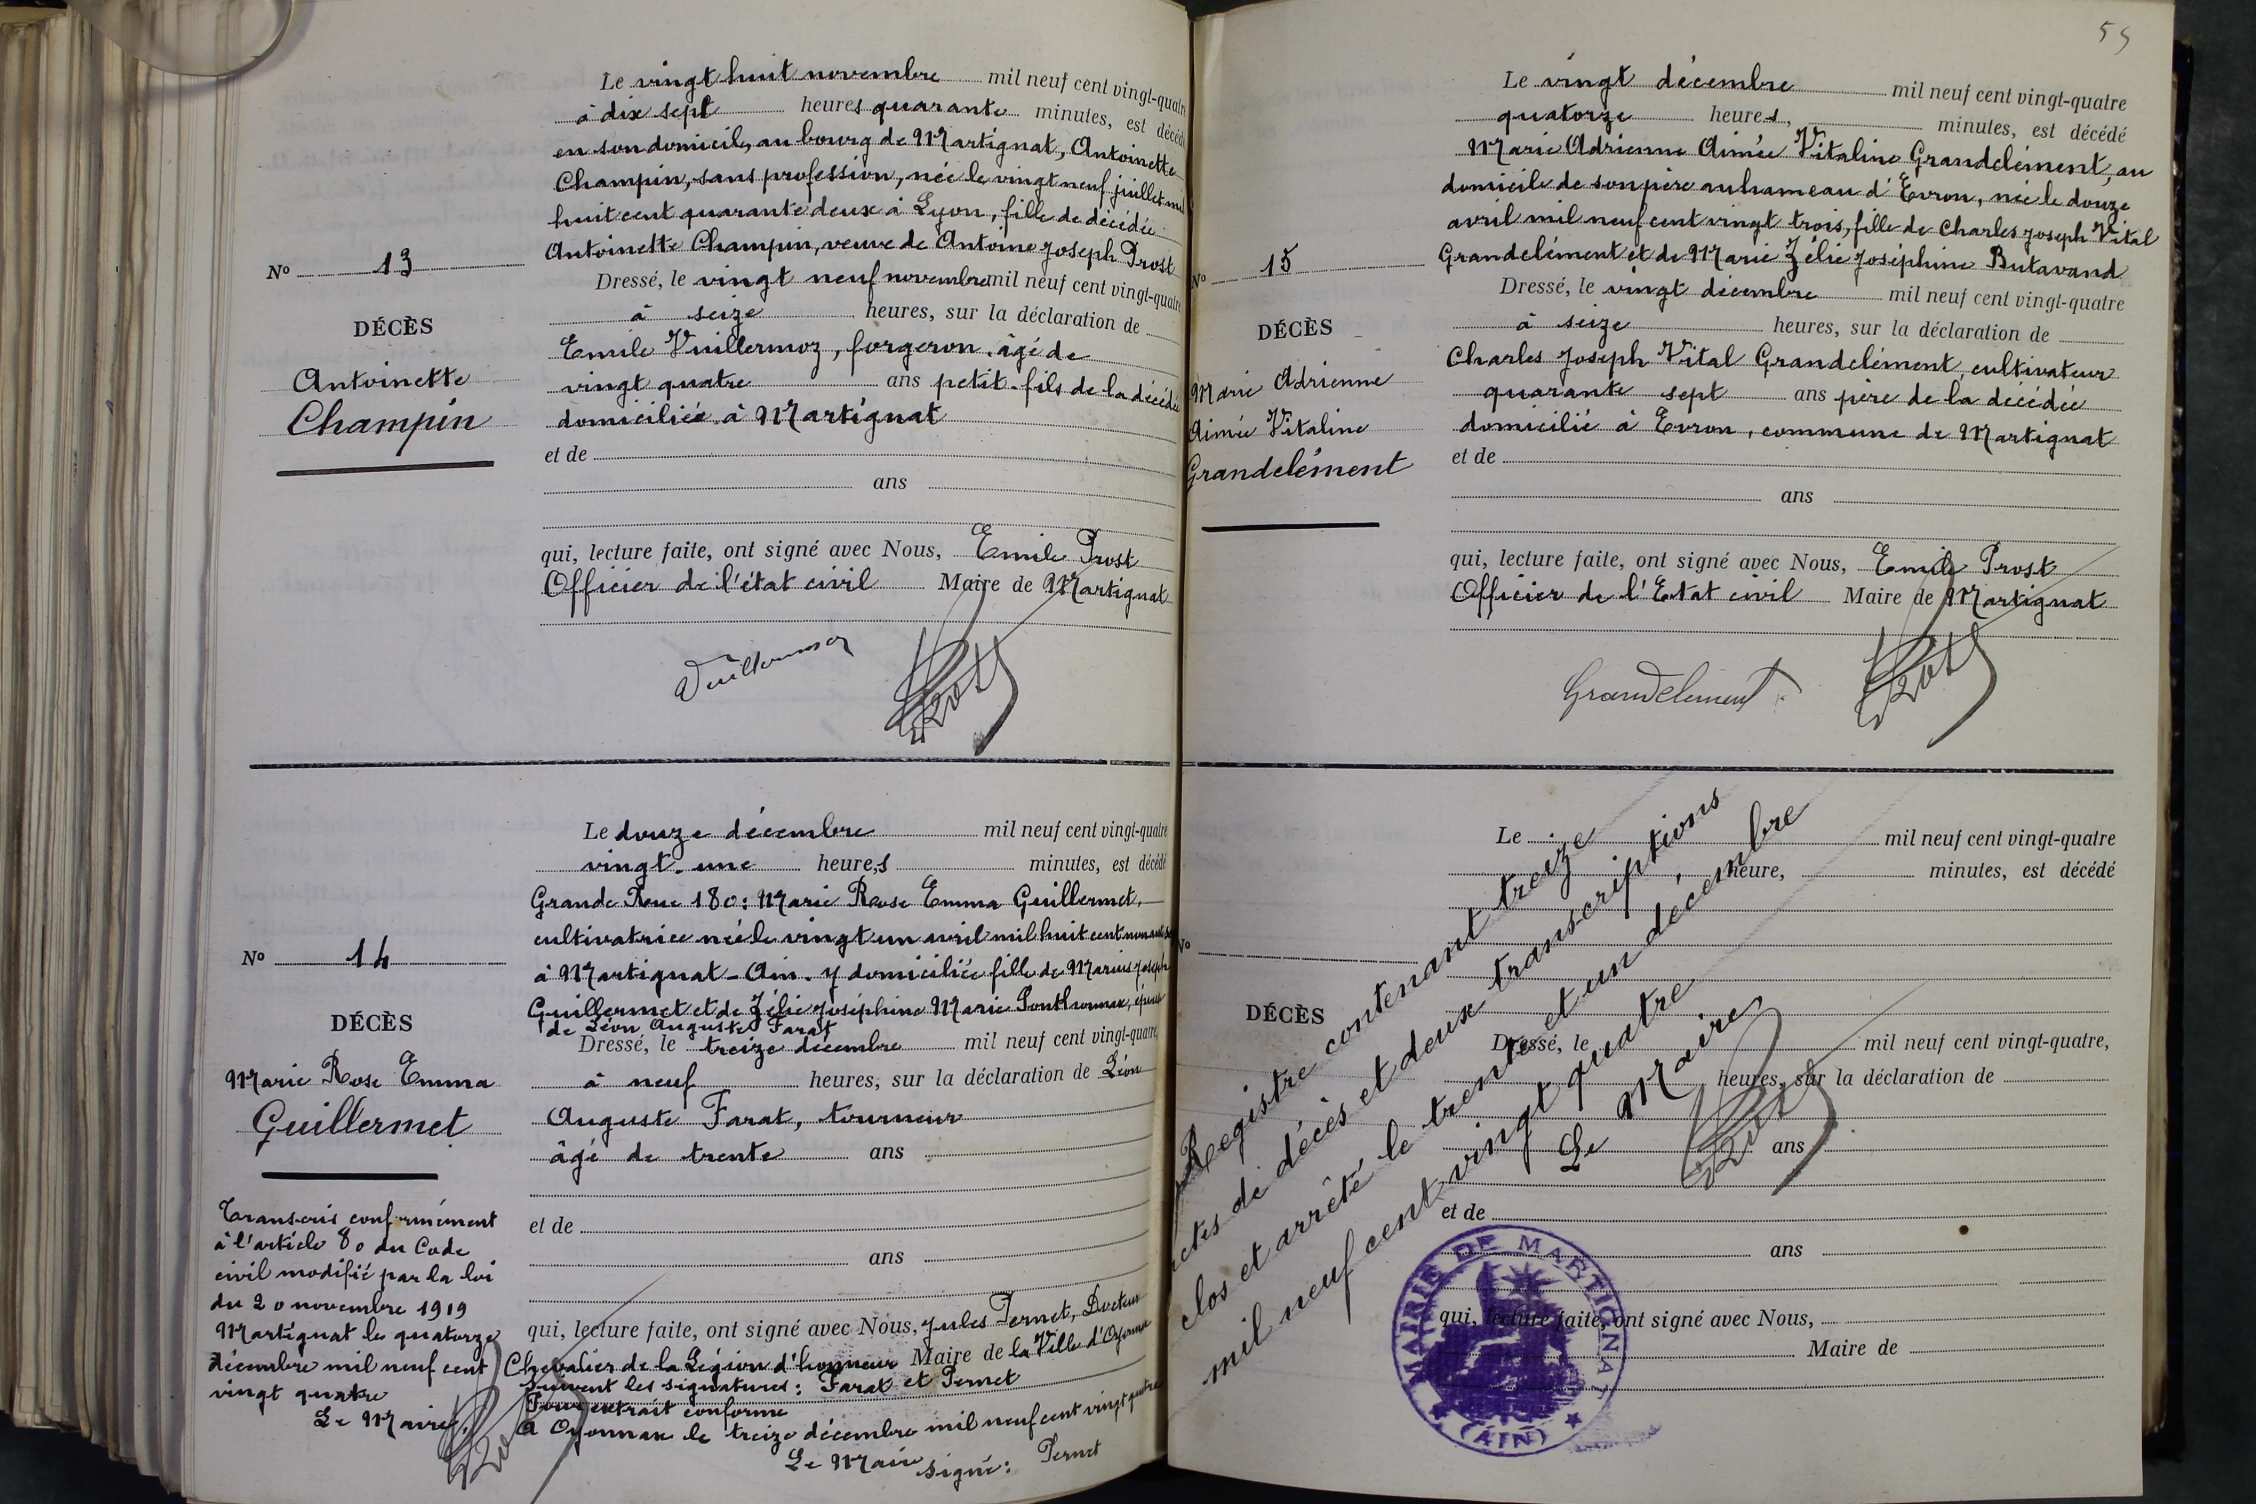 Le vingt huit novembre mil neuf cent vingt-quatre
à dix sept heures quarante minutes, est décédé
en son domicile, au bourg de Martignat, Antoinette
Champin, sans profession, née le vingt neuf juillet mil
huit cent quarante deux à Lyon, fille de décédée
Antoinette Champin, veuve de Antoine Joseph Prost
Nº 13
Dressé, le vingt neuf novembre mil neuf cent vingt-quatre
à seize heures, sur la déclaration de
DÉCÈS
Emile Vuillermoz, forgeron, âgé de
Antoinette
vingt quatre ans petit-fils de la décédée
Champin
domiciliée à Martignat
et de
ans
qui, lecture faite, ont signé avec Nous, Emile Prost
Officier de l'état civil Maire de Martignat
Vuillermoz Prost
Le douze décembre mil neuf cent vingt-quatre
vingt une heures minutes, est décédé
Grande Rue 180: Marie Rose Emma Guillermet,
cultivatrice née le vingt un avril mil huit cent
Nº 14
à Martignat - Ain - y domiciliée fille de Marius Joseph
Guillermet et de Zélie Joséphine Marie Ponthonnax, épouse
de Léon Auguste Farat
DÉCÈS
Dressé, le treize décembre mil neuf cent vingt-quatre,
Marie Rose Emma
à neuf heures, sur la déclaration de Léon
Guillermet
Auguste Farat, tourneur
âgé de trente ans
et de
ans
Transcris conformément
à l'article 80 du Code
civil modifié par la loi
du 20 novembre 1919
Martignat le quatorze
décembre mil neuf cent
vingt quatre
Le Maire,
Prost
qui, lecture faite, ont signé avec Nous, Jules Pernet, Docteur
Chevalier de la Légion d'honneur Maire de la Ville d'Oyonnax
Suivent les signatures: Farat et Pernet
Pour extrait conforme
A Oyonnax le treize décembre mil neuf cent vingt quatre
Le Maire
signé: Pernet
59
Le vingt décembre mil neuf cent vingt-quatre
quatorze heures, minutes, est décédé
Marie Adrienne Aimée Vitaline Grandclément, au
domicile de son père au hameau d'Evron, née le douze
avril mil neuf cent vingt trois, fille de Charles Joseph Vital
Grandclément et de Marie Zélie Joséphine Butavand
Nº 15
Dressé, le vingt décembre mil neuf cent vingt-quatre
à seize heures, sur la déclaration de
DÉCÈS
Charles Joseph Vital Grandclément, cultivateur
Marie Adrienne
quarante sept ans père de la décédée
Aimée Vitaline
domicilié à Evron, commune de Martignat
Grandclément
et de
ans
qui, lecture faite, ont signé avec Nous, Emile Prost
Officier de l'Etat civil Maire de Martignat
Grandclement Prost
Le mil neuf cent vingt-quatre
heure, minutes, est décédé
Nº
DÉCÈS
Dressé, le mil neuf cent vingt-quatre,
heures, sur la déclaration de
ans
et de
ans
qui, lecture faite, ont signé avec Nous,
Maire de
Registre contenant treize
actes de décès et deux transcriptions
clos et arrêté le trente et un décembre
mil neuf cent vingt quatre
Le Maire
Prost
MAIRIE DE MARTIGNAT
(AIN)